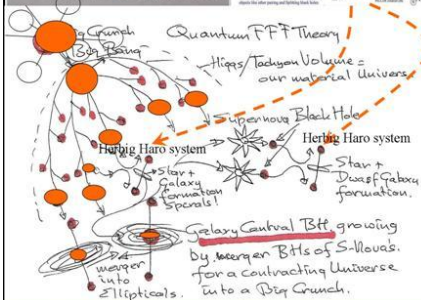 Big Crunch
Big Bang
Quantum FFF Theory
Higgs/Tachyon Volume =
our material Univers.
Supernova Black Hole
Herbig Haro system
Herbig Haro system
Star +
Galaxy
formation
Spirals!
Star +
Dwarf Galaxy
formation.
Galaxy Central BH growing
by merger BHs of S-Nova's.
for a contracting Universe
into a Big Crunch.
merger
into
Ellipticals.